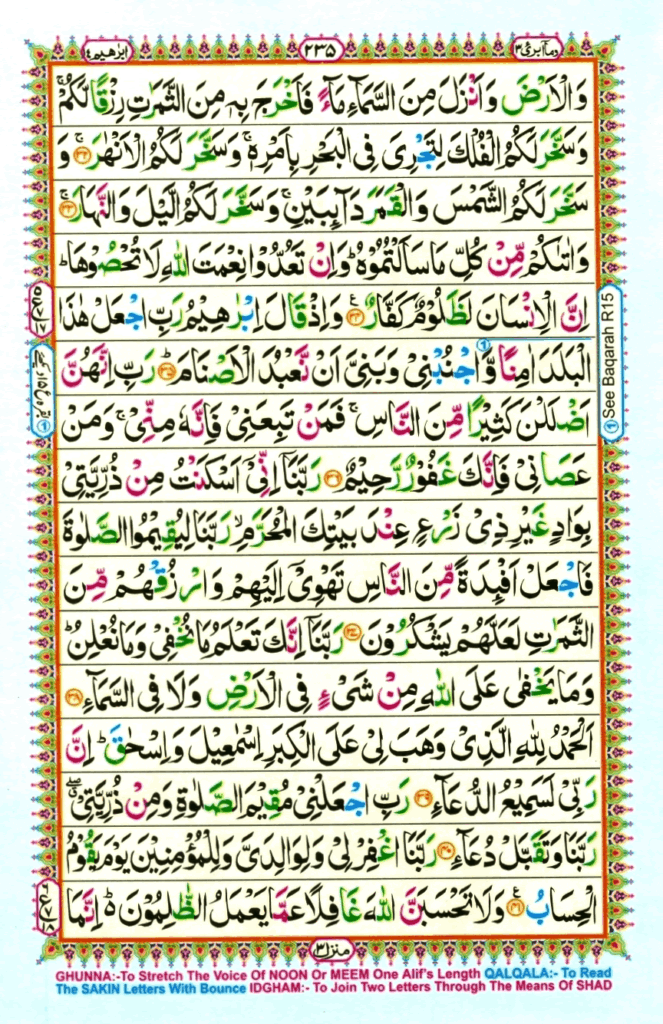 ابرٰهيم ١٤
٢٣٥
وما ابرئ ١٣
وَالْاَرْضَ وَاَنْزَلَ مِنَ السَّمَآءِ مَآءً فَاَخْرَجَ بِهٖ مِنَ الثَّمَرٰتِ رِزْقًا لَّكُمْ ۚ
وَسَخَّرَ لَكُمُ الْفُلْكَ لِتَجْرِىَ فِى الْبَحْرِ بِاَمْرِهٖ ۚ وَسَخَّرَ لَكُمُ الْاَنْهٰرَ ۚ‏﴿۳۲﴾ وَ
سَخَّرَ لَكُمُ الشَّمْسَ وَالْقَمَرَ دَآئِبَيْنِ ۚ وَسَخَّرَ لَكُمُ الَّيْلَ وَالنَّهَارَ ۚ‏﴿۳۳﴾
وَاٰتٰٮكُمْ مِّنْ كُلِّ مَا سَاَلْتُمُوْهُ ؕ وَاِنْ تَعُدُّوْا نِعْمَتَ اللّٰهِ لَا تُحْصُوْهَا ؕ
اِنَّ الْاِنْسَانَ لَظَلُوْمٌ كَفَّارٌ‏﴿۳۴﴾ وَاِذْ قَالَ اِبْرٰهِيْمُ رَبِّ اجْعَلْ هٰذَا
الْبَلَدَ اٰمِنًا وَّاجْنُبْنِىْ وَبَنِىَّ اَنْ نَّعْبُدَ الْاَصْنَامَ ؕ‏﴿۳۵﴾ رَبِّ اِنَّهُنَّ
اَضْلَلْنَ كَثِيْرًا مِّنَ النَّاسِ ۚ فَمَنْ تَبِعَنِىْ فَاِنَّهٗ مِنِّىْ ۚ وَمَنْ
عَصَانِىْ فَاِنَّكَ غَفُوْرٌ رَّحِيْمٌ‏﴿۳۶﴾ رَبَّنَاۤ اِنِّىْۤ اَسْكَنْتُ مِنْ ذُرِّيَّتِىْ
بِوَادٍ غَيْرِ ذِىْ زَرْعٍ عِنْدَ بَيْتِكَ الْمُحَرَّمِۙ رَبَّنَا لِيُقِيْمُوا الصَّلٰوةَ
فَاجْعَلْ اَفْئِدَةً مِّنَ النَّاسِ تَهْوِىْۤ اِلَيْهِمْ وَارْزُقْهُمْ مِّنَ
الثَّمَرٰتِ لَعَلَّهُمْ يَشْكُرُوْنَ‏﴿۳۷﴾ رَبَّنَاۤ اِنَّكَ تَعْلَمُ مَا نُخْفِىْ وَمَا نُعْلِنُ ؕ
وَمَا يَخْفٰى عَلَى اللّٰهِ مِنْ شَىْءٍ فِى الْاَرْضِ وَلَا فِى السَّمَآءِ‏﴿۳۸﴾
اَلْحَمْدُ لِلّٰهِ الَّذِىْ وَهَبَ لِىْ عَلَى الْكِبَرِ اِسْمٰعِيْلَ وَاِسْحٰقَ ؕ اِنَّ
رَبِّىْ لَسَمِيْعُ الدُّعَآءِ‏﴿۳۹﴾ رَبِّ اجْعَلْنِىْ مُقِيْمَ الصَّلٰوةِ وَمِنْ ذُرِّيَّتِىْ ۖ
رَبَّنَا وَتَقَبَّلْ دُعَآءِ‏﴿۴۰﴾ رَبَّنَا اغْفِرْ لِىْ وَلِوَالِدَىَّ وَلِلْمُؤْمِنِيْنَ يَوْمَ يَقُوْمُ
الْحِسَابُ‏﴿۴۱﴾ وَلَا تَحْسَبَنَّ اللّٰهَ غَافِلًا عَمَّا يَعْمَلُ الظّٰلِمُوْنَ ؕ اِنَّمَا
منزل ٣
① See Baqarah R15
GHUNNA:-To Stretch The Voice Of NOON Or MEEM One Alif's Length QALQALA:- To Read
The SAKIN Letters With Bounce IDGHAM:- To Join Two Letters Through The Means Of SHAD